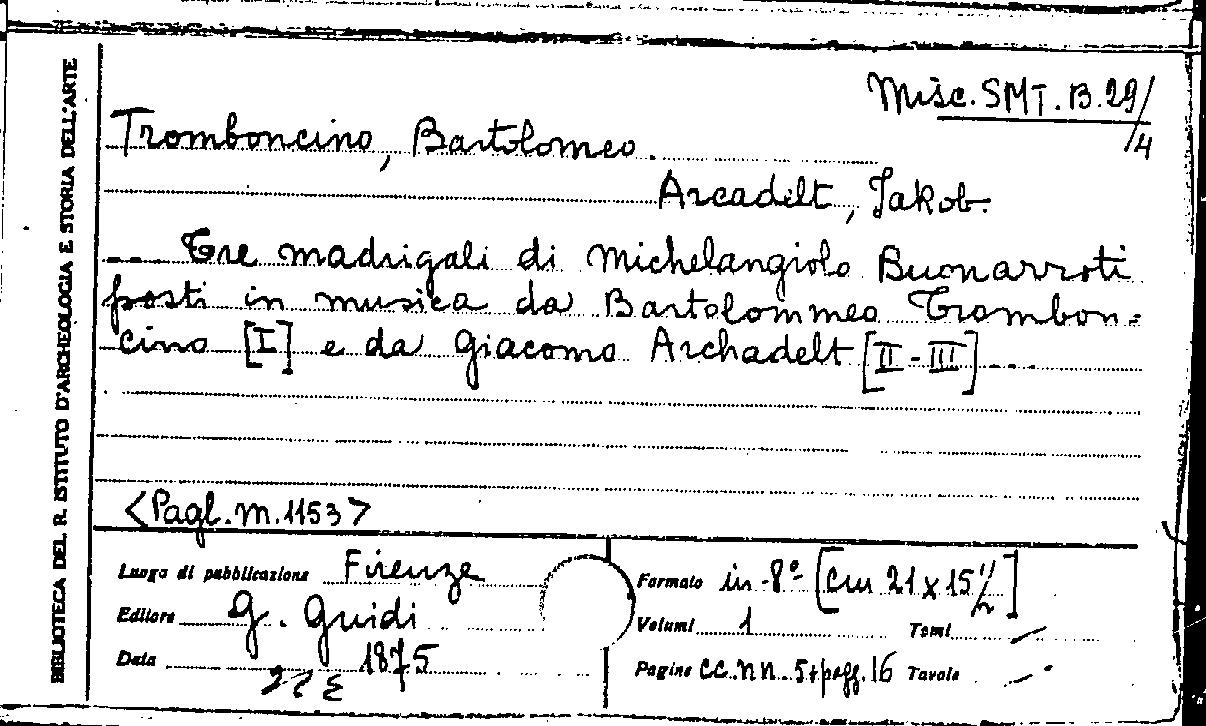 BIBLIOTECA DEL R. ISTITUTO D'ARCHEOLOGIA E STORIA DELL'ARTE
Misc. SMT. B. 29/4
Tromboncino, Bartolomeo.
Arcadelt, Jakob.
Tre madrigali di Michelangiolo Buonarroti
posti in musica da Bartolommeo Trombon=
cino [I] e da Giacomo Archadelt [II-III]
<Pagl. m. 1153>
Luogo di pubblicazione Firenze
Editore G. Guidi
Data 1875
Formato in-8º [cm 21 x 15 1/2]
Volumi 1 Tomi
Pagine cc. nn. 5 + pagg. 16 Tavole